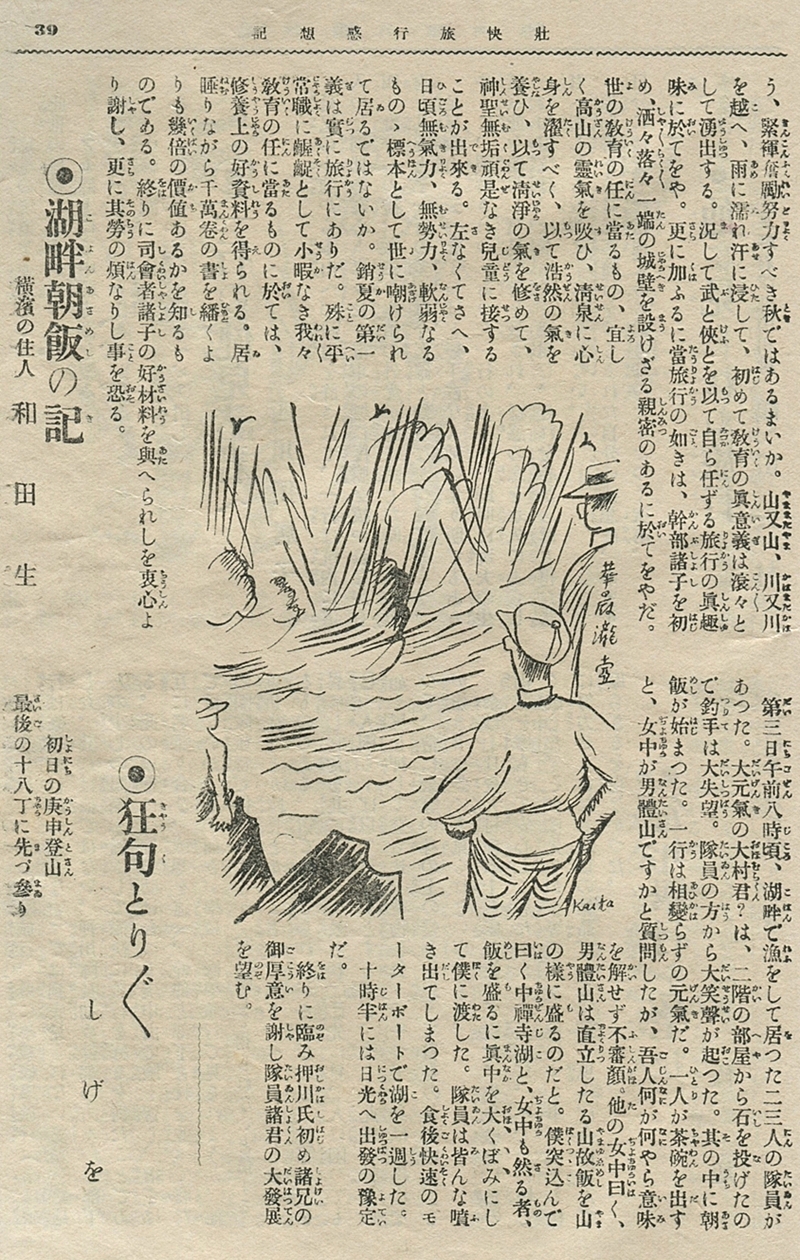 39
壯快旅行感想記
う、緊褌奮勵努力すべき秋ではあるまいか。山又山、川又川
を越へ、雨に濡れ汗に浸して、初めて敎育の眞意義は滾々と
して湧出する。況して武と俠とを以て自ら任ずる旅行の眞趣
味に於てをや。更に加ふるに當旅行の如きは、幹部諸子を初
め、洒々落々一端の城壁を設けざる親密のあるに於てをやだ。
世の敎育の任に當るもの、宜し
く高山の靈氣を吸ひ、淸泉に心
身を濯すべく、以て浩然の氣を
養ひ、以て淸淨の氣を修めて、
神聖無垢頑是なき兒童に接する
ことが出來る。左なくてさへ、
日頃無氣力、無勢力、軟弱なる
ものゝ標本として世に嘲けられ
て居るではないか。銷夏の第一
義は實に旅行にありだ。殊に平
常職に齷齪として小暇なき我々
敎育の任に當るものに於ては、
修養上の好資料を得られる。居
睡りながら千萬卷の書を繙くよ
りも幾倍の價値あるかを知るも
のである。終りに司會者諸子の好材料を與へられしを衷心よ
り謝し、更に其勞の煩なりし事を恐る。
華嚴瀧壺
Kaita
◉湖畔朝飯の記
橫濱の住人 和田生
第三日午前八時頃、湖畔で漁をして居つた二三人の隊員が
あつた。大元氣の大村君?は、二階の部屋から石を投げたの
で釣手は大失望。隊員の方から大笑聲が起つた。其の中に朝
飯が始まつた。一行は相變らずの元氣だ。一人が茶碗を出す
と、女中が男體山ですかと質問したが、吾人何が何やら意味
を解せず不審顏。他の女中曰く、
男體山は直立したる山故飯を山
の樣に盛るのだと。僕突込んで
曰く中禪寺湖と、女中も然る者、
飯を盛るに眞中を大くぼみにし
て僕に渡した。隊員は皆んな噴
き出てしまつた。食後快速のモ
ーターボートで湖を一週した。
十時半には日光へ出發の豫定
だ。
終りに臨み押川氏初め諸兄の
御厚意を謝し隊員諸君の大發展
を望む。
◉狂句とりぐ〵
しげを
初日の庚申登山
最後の十八丁に先づ參り